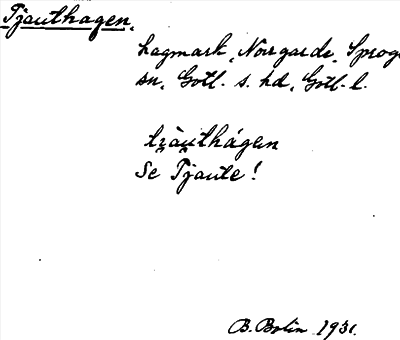 Tjauthagen.
hagmark, Norrgarde, Sproge
sn, Gotl. s. hd, Gotl. l.
tjàuthágen
Se Tjaute!
B. Bolin 1931.